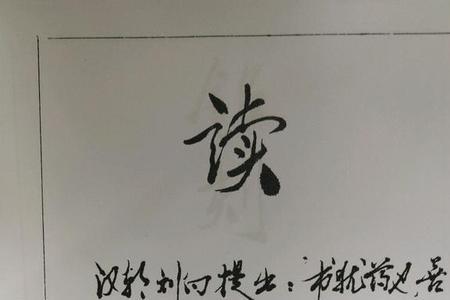 读
汉朝刘向提出：书犹药也，善